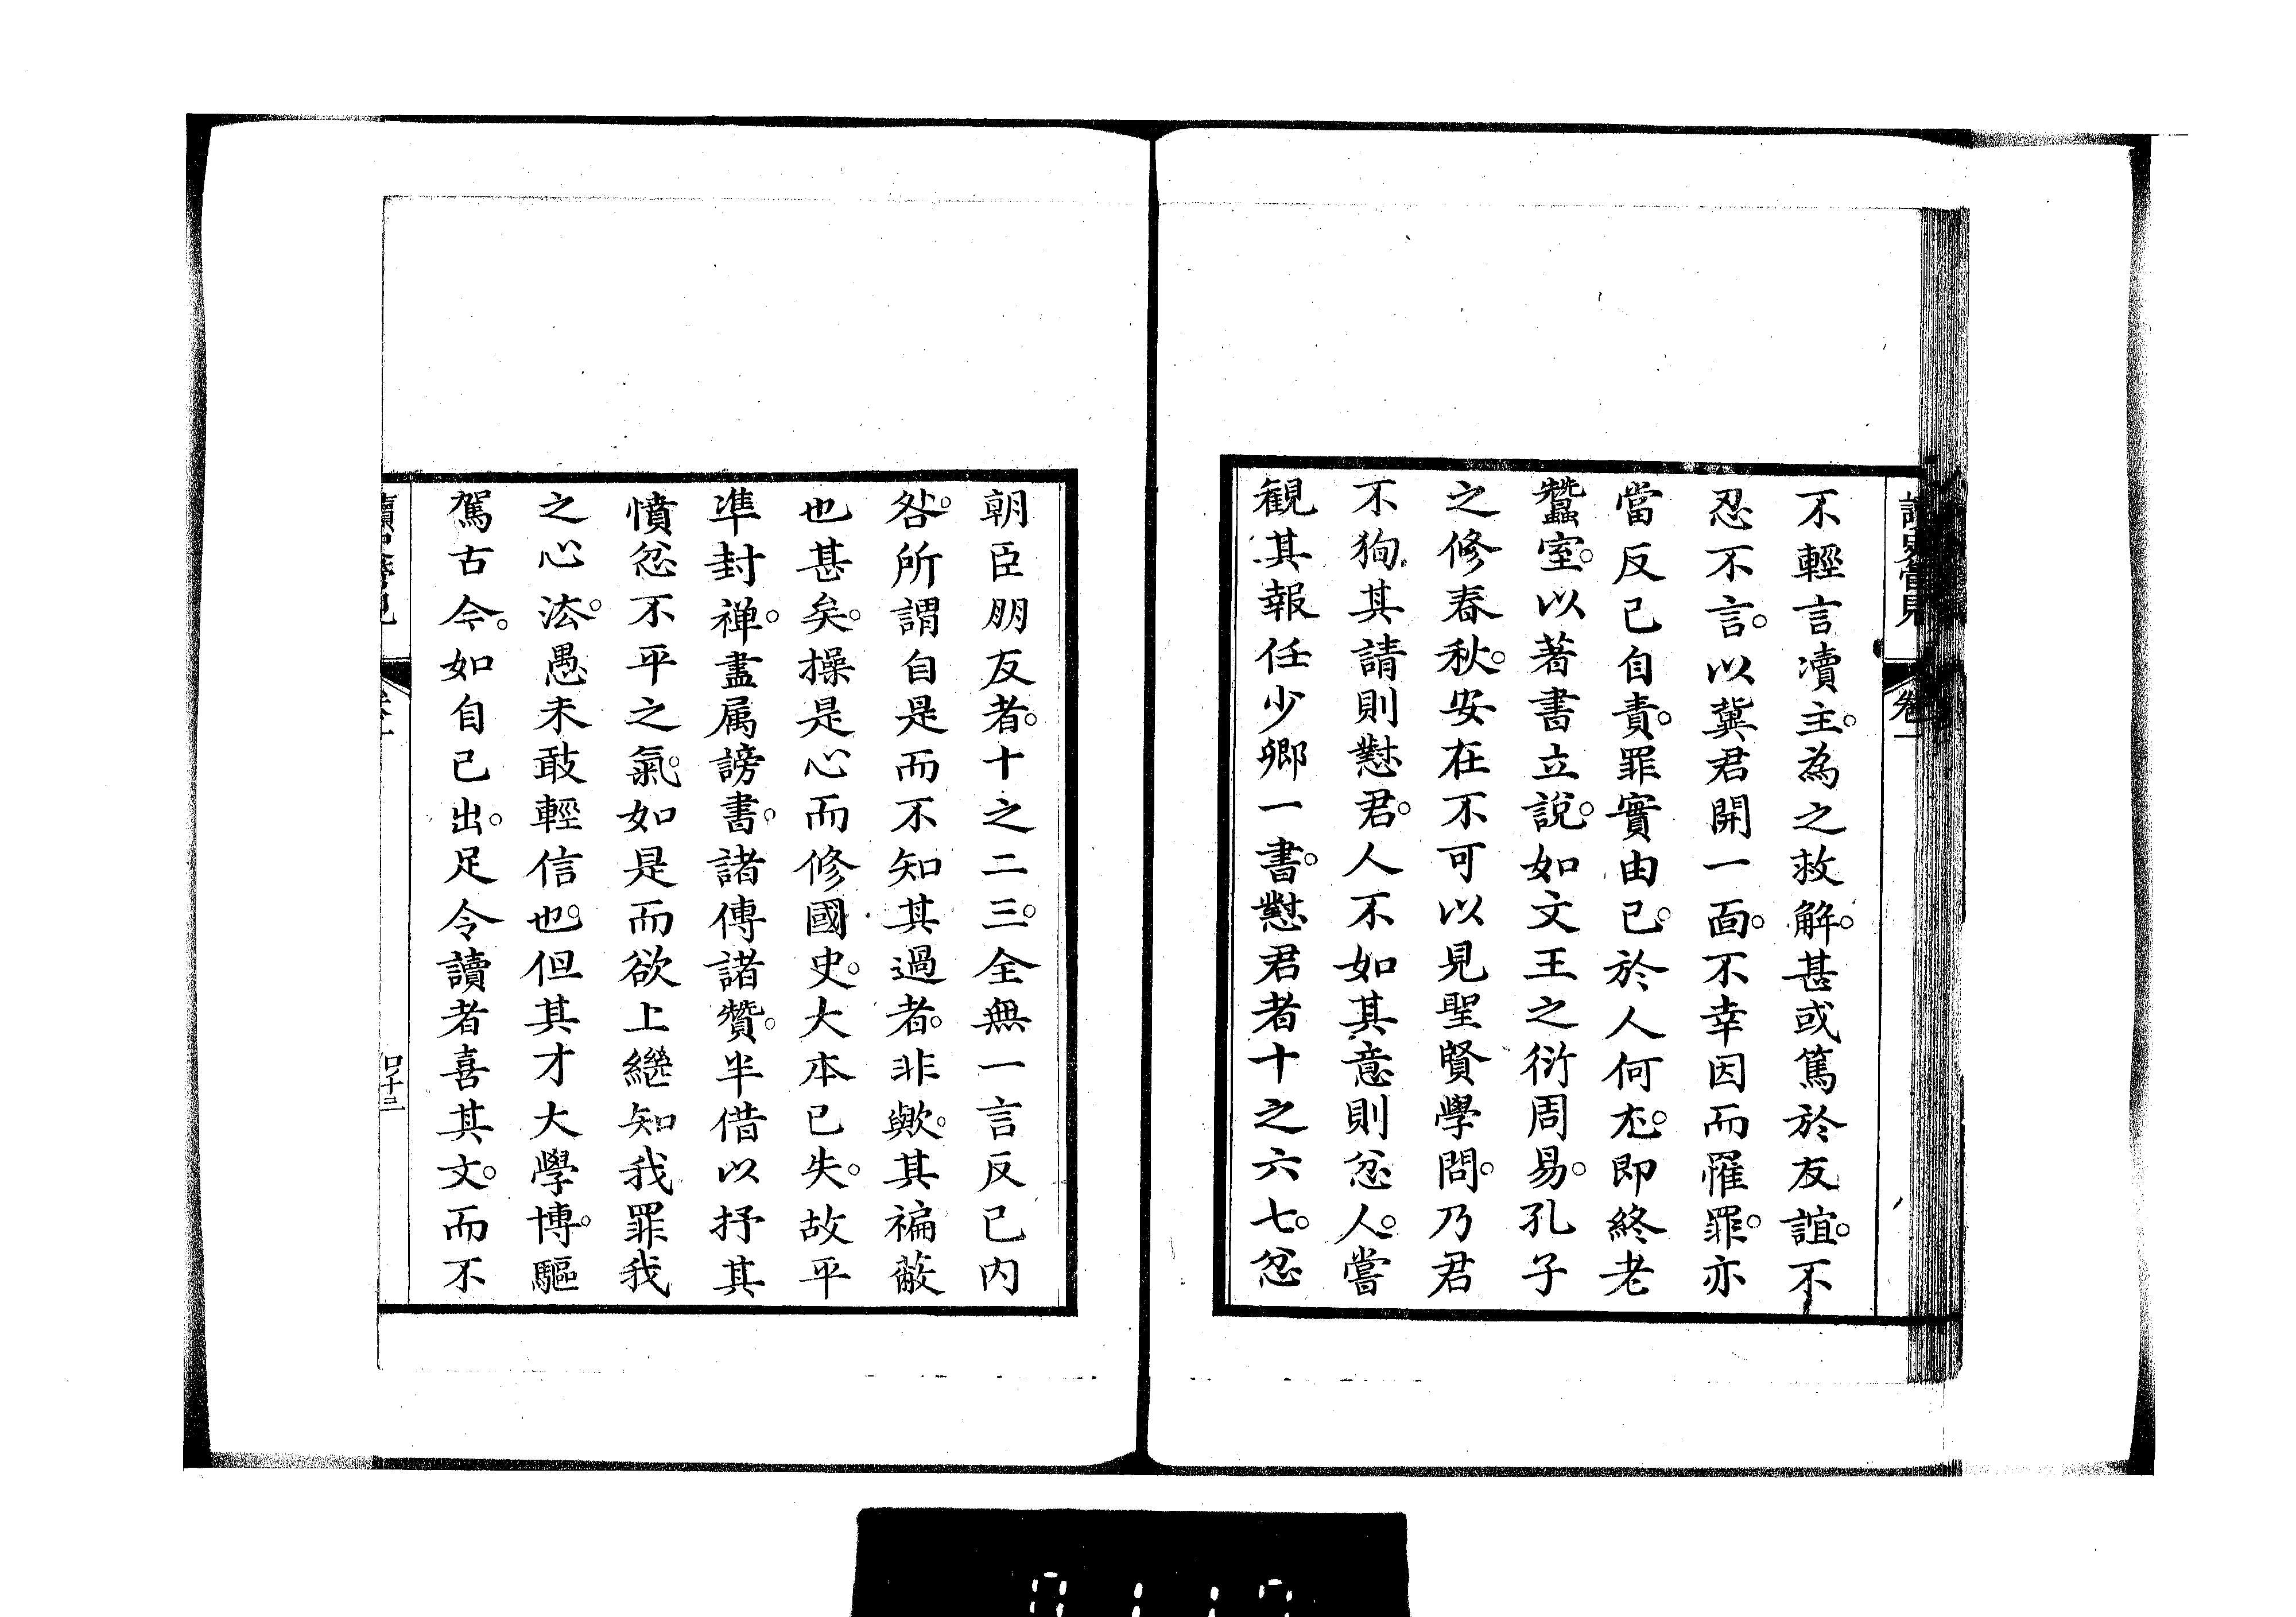 不輕言凟主。為之救解。甚或篤於友誼。不
忍不言。以冀君開一面。不幸因而罹罪。亦
當反已自責。罪實由已。於人何尤。即終老
蠶室。以著書立說。如文王之衍周易。孔子
之修春秋。安在不可以見聖賢學問。乃君
不狥其請則懟君。人不如其意則忿人。嘗
観其報任少卿一書。懟君者十之六七。忿
朝臣朋友者。十之二三。全無一言反已内
咎。所謂自是而不知其過者。非歟。其褊蔽
也甚矣。操是心而修國史。大本已失。故平
凖封禅。盡属謗書。諸傳諸贊。半借以抒其
憤忿不平之氣。如是而欲上繼知我罪我
之心法。愚未敢輕信也。但其才大學博。驅
駕古今。如自已出。足令讀者喜其文。而不
卷一
四十三